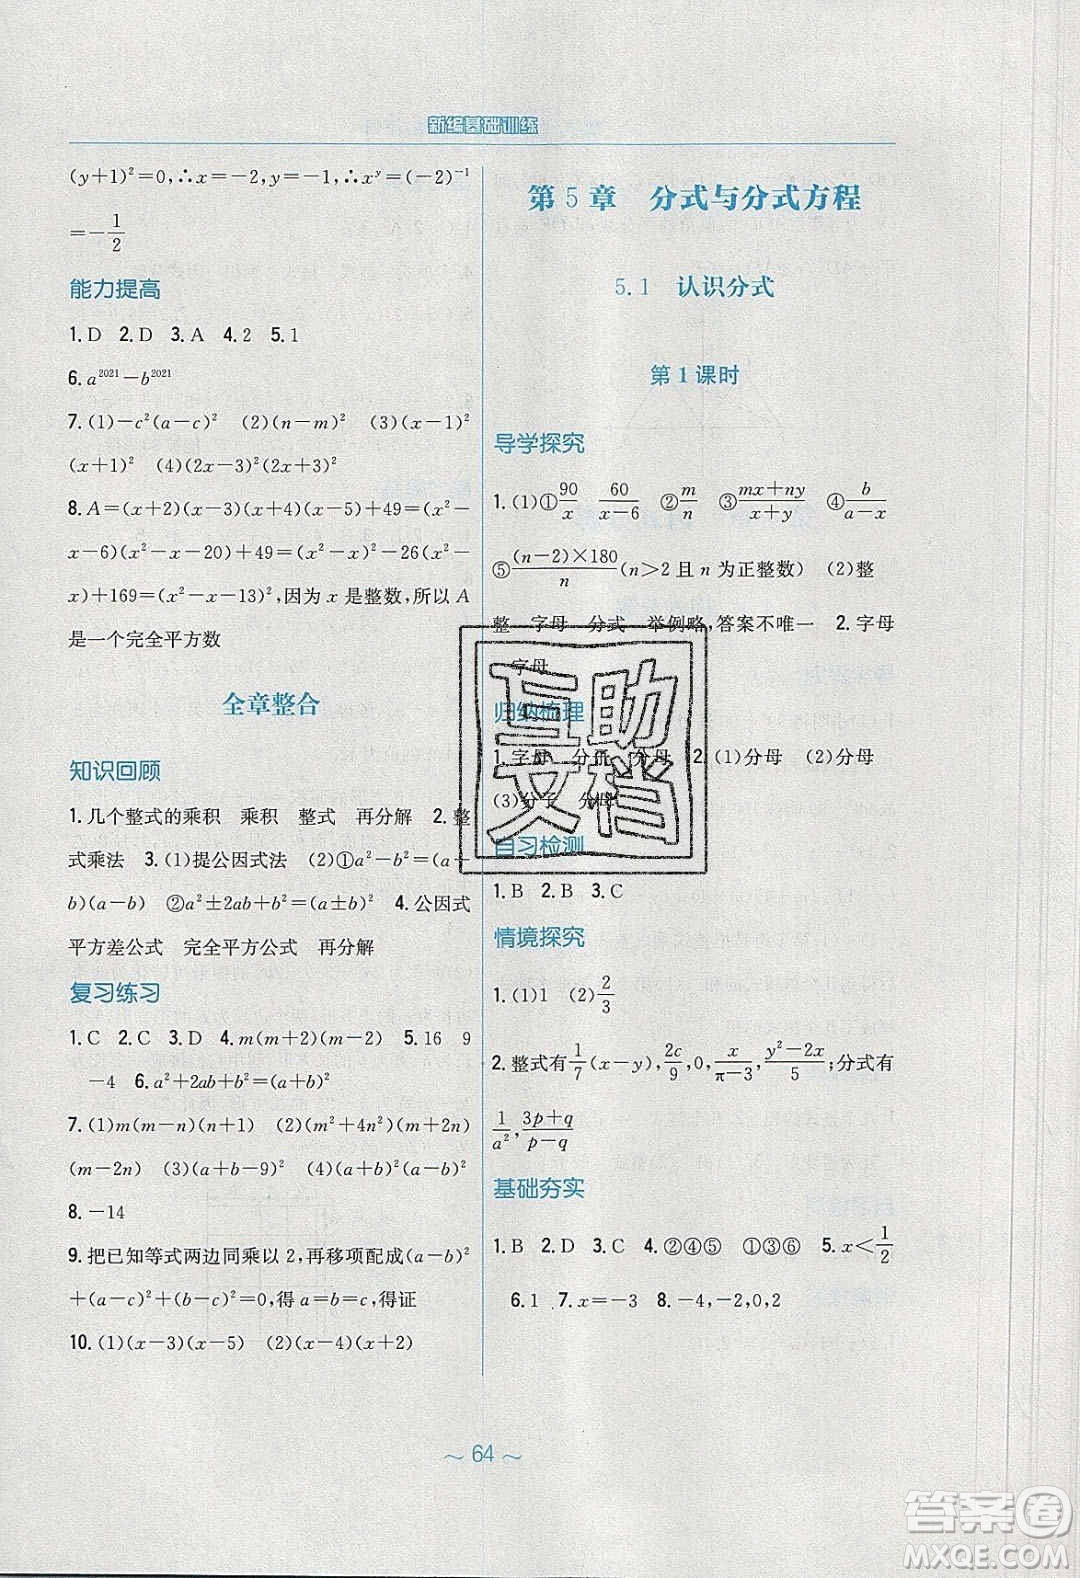 新编基础训练
(y+1)²=0,∴x=-2,y=-1,∴xʸ=(-2)⁻¹
=-1/2
能力提高
1.D 2.D 3.A 4.2 5.1
6.a²⁰²¹-b²⁰²¹
7.(1)-c²(a-c)² (2)(n-m)² (3)(x-1)²
(x+1)² (4)(2x-3)²(2x+3)²
8.A=(x+2)(x-3)(x+4)(x-5)+49=(x²-
x-6)(x²-x-20)+49=(x²-x)²-26(x²-
x)+169=(x²-x-13)²,因为x是整数,所以A
是一个完全平方数
全章整合
知识回顾
1.几个整式的乘积 乘积 整式 再分解 2.整
式乘法 3.(1)提公因式法 (2)①a²-b²=(a+
b)(a-b) ②a²±2ab+b²=(a±b)² 4.公因式
平方差公式 完全平方公式 再分解
复习练习
1.C 2.C 3.D 4.m(m+2)(m-2) 5.16 9
-4 6.a²+2ab+b²=(a+b)²
7.(1)m(m-n)(n+1) (2)(m²+4n²)(m+2n)
(m-2n) (3)(a+b-9)² (4)(a+b)²(a-b)²
8.-14
9.把已知等式两边同乘以2,再移项配成(a-b)²
+(a-c)²+(b-c)²=0,得a=b=c,得证
10.(1)(x-3)(x-5) (2)(x-4)(x+2)
第5章 分式与分式方程
5.1 认识分式
第1课时
导学探究
1.(1)①90/x 60/(x-6) ②m/n ③(mx+ny)/(x+y) ④b/(a-x)
⑤((n-2)×180)/n(n>2且n为正整数) (2)整
整 字母 分式 举例略,答案不唯一 2.字母
字母
归纳梳理
1.字母 分子 分母 2.(1)分母 (2)分母
(3)分子 分母
自习检测
1.B 2.B 3.C
情境探究
1.(1)1 (2)2/3
2.整式有1/7(x-y),2c/9,0,x/(π-3),(y²-2x)/5;分式有
1/a²,(3p+q)/(p-q)
基础夯实
1.B 2.D 3.C 4.②④⑤ ①③⑥ 5.x<1/2
6.1 7.x=-3 8.-4,-2,0,2
互助
文档
~64~
答案圈
MXQE.COM